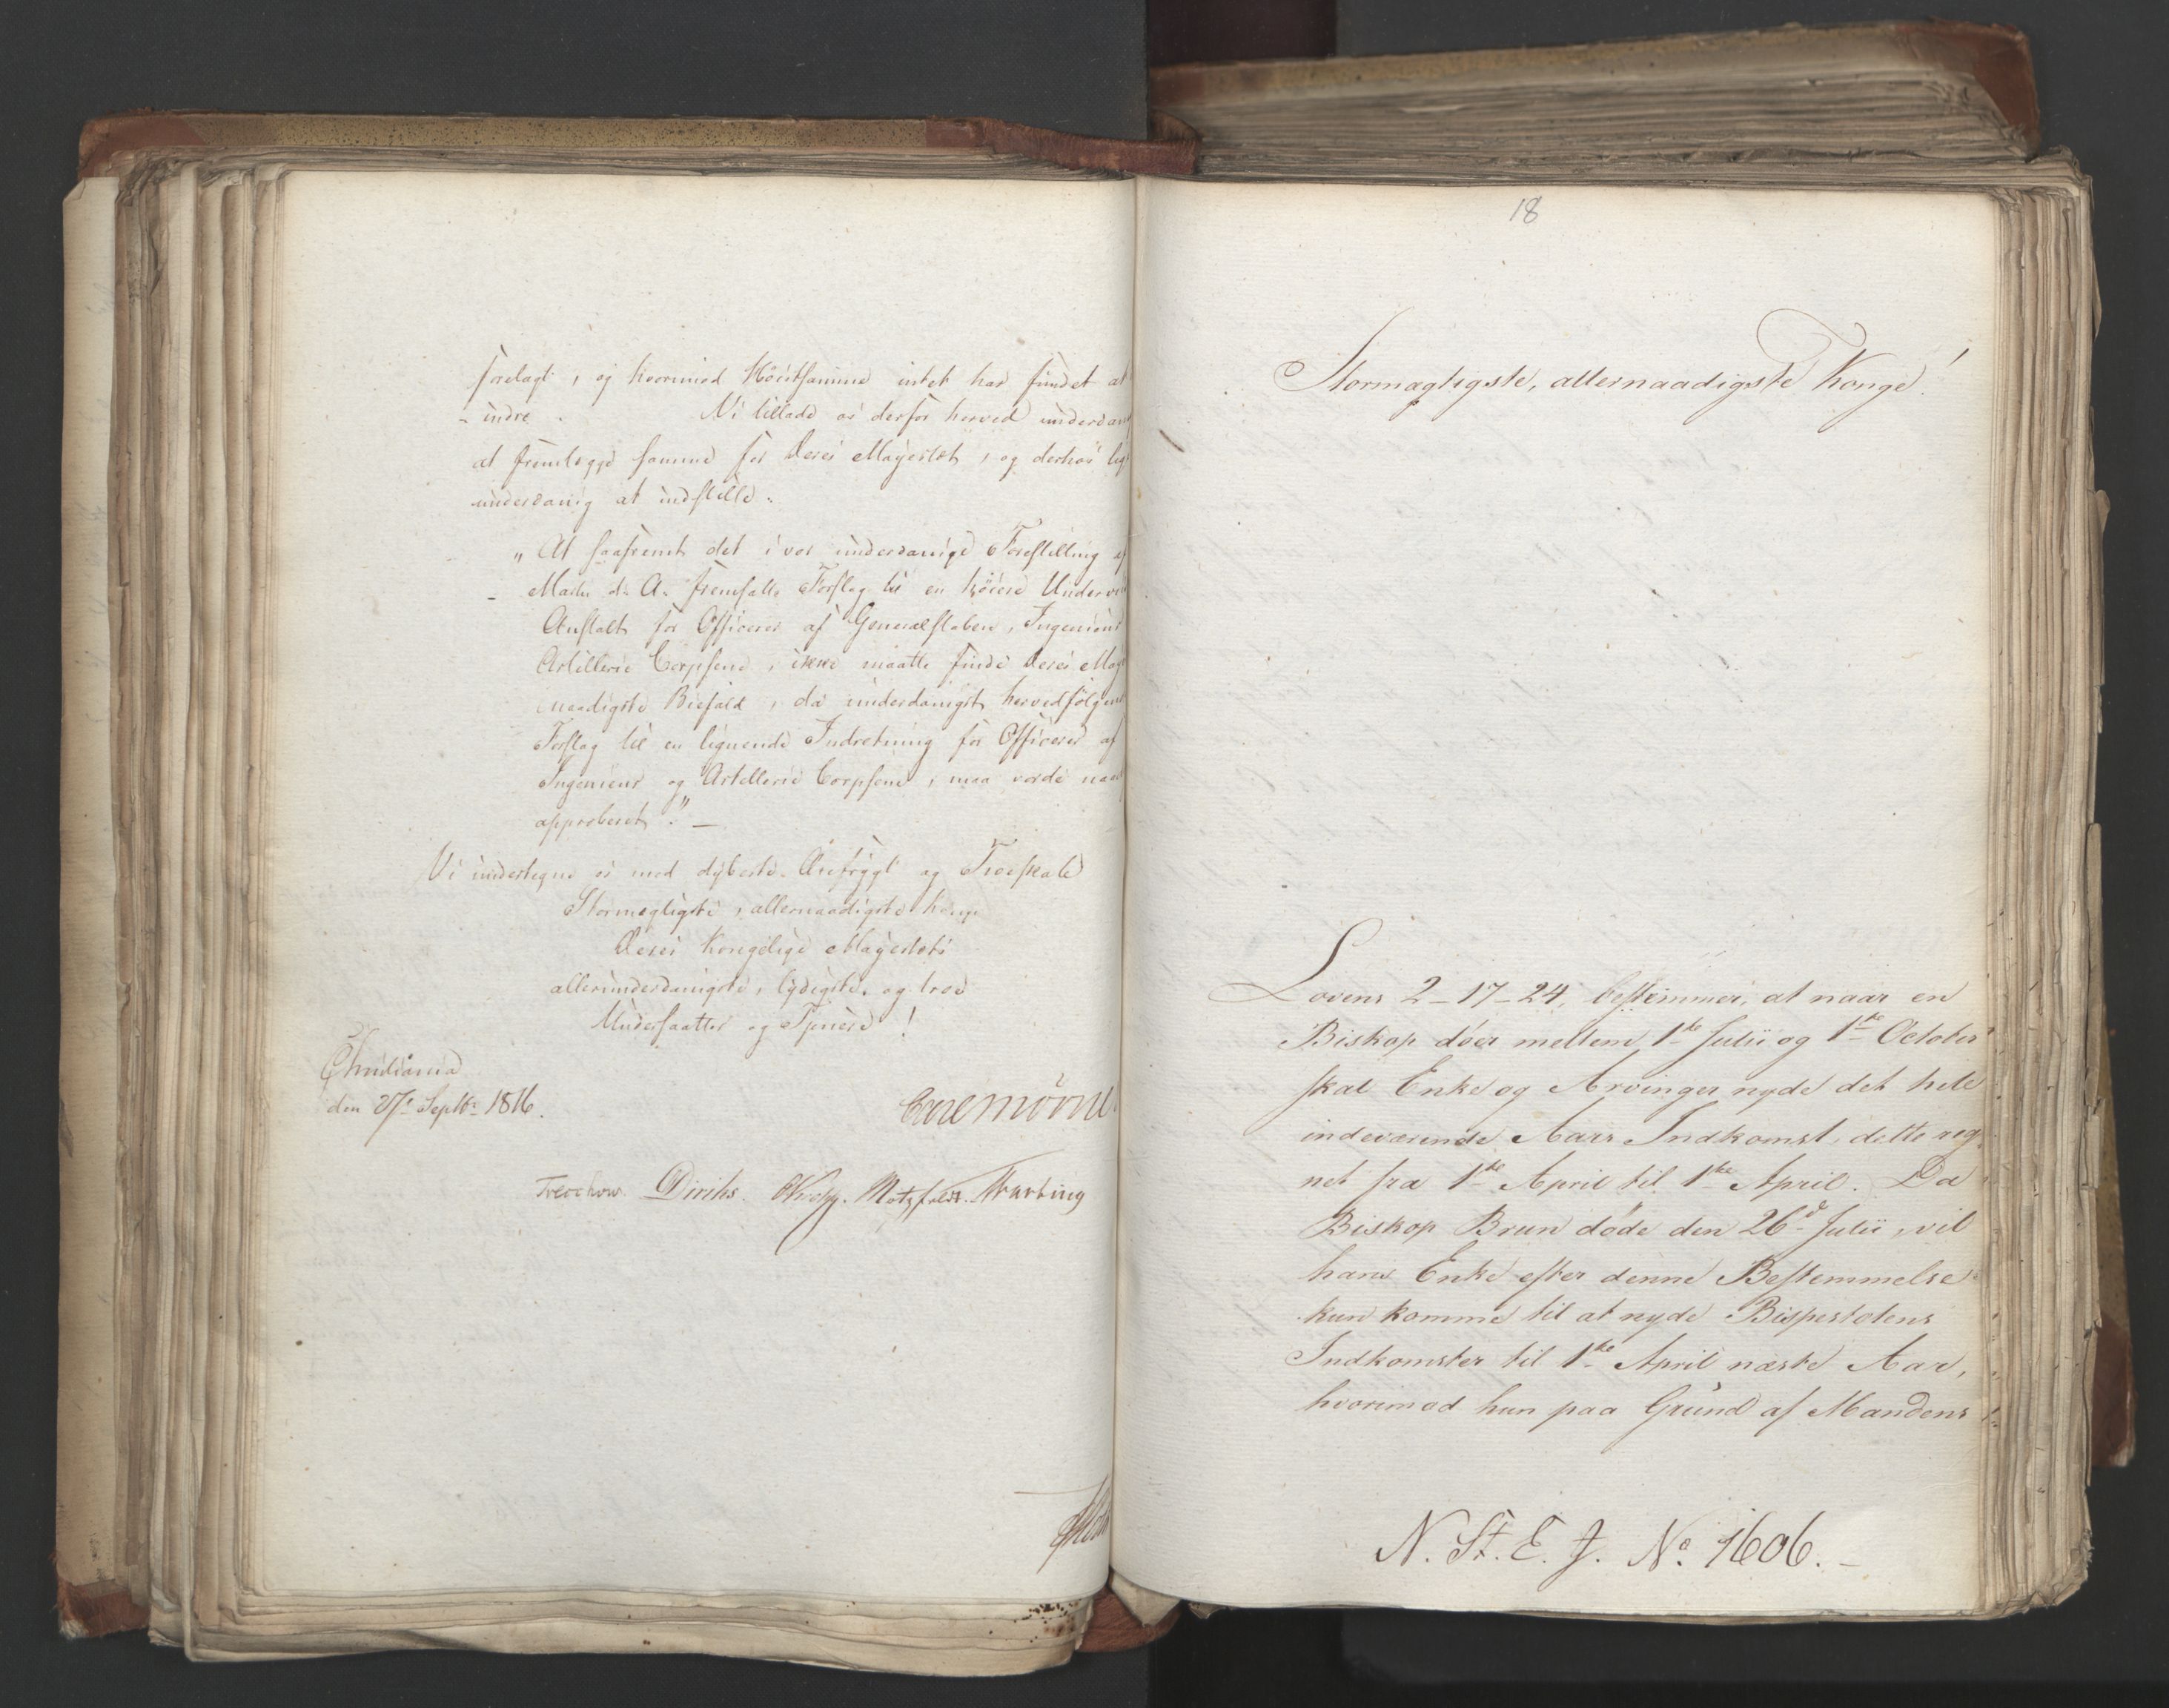 forelagt, og hvorimod Høistsamme intet har fundet at
- indre. Vi tillade os derfor herved underdan
at fremlægge samme for Deres Majestæt, og derhos
underdanig at indstille:
"At saafremt det i vor underdanige Forestilling af
- d: A: fremsatte Forslag til en høiere Undervi
Anstalt for Officerer af Generalstaben, Ingenieur
Artillerie Corpsene, ikke maatte finde Deres Maj
naadigste Biefald, da underdanigst hervedfølgend
Forslag til en lignende Indretning for Officerer af
Ingenieur og Artillerie Corpsene, maa vorde naad
approberet". —
Vi undertegne os med dybeste Ærefrygt og Troeskab
Stormægtigste, allernaadigste Konge
Deres Kongelige Majestæts
allerunderdanigste, lydigste og troe
Undersaatter og Tjenere!
Christiania
den 27de Septbr 1816.
Carl Mörner
Treschow. Diriks. Krohg. Motzfeldt.
18
Stormægtigste, allernaadigste Konge!
Lovens 2-17-24, bestemmer, at naar en
Biskop døer mellem 1ste Julii og 1ste October
skal Enke og Arvinger nyde det hele
indeværende Aars Indkomst, dette reg
net fra 1ste April til 1ste April. Da
Biskop Brun døde den 26d Julii, vil
hans Enke efter denne Bestemmelse
kun komme til at nyde Bispestolens
Indkomster til 1ste April næste Aar,
hvorimod hun paa Grund af Mandens
N. St. E. J. No. 1606. —